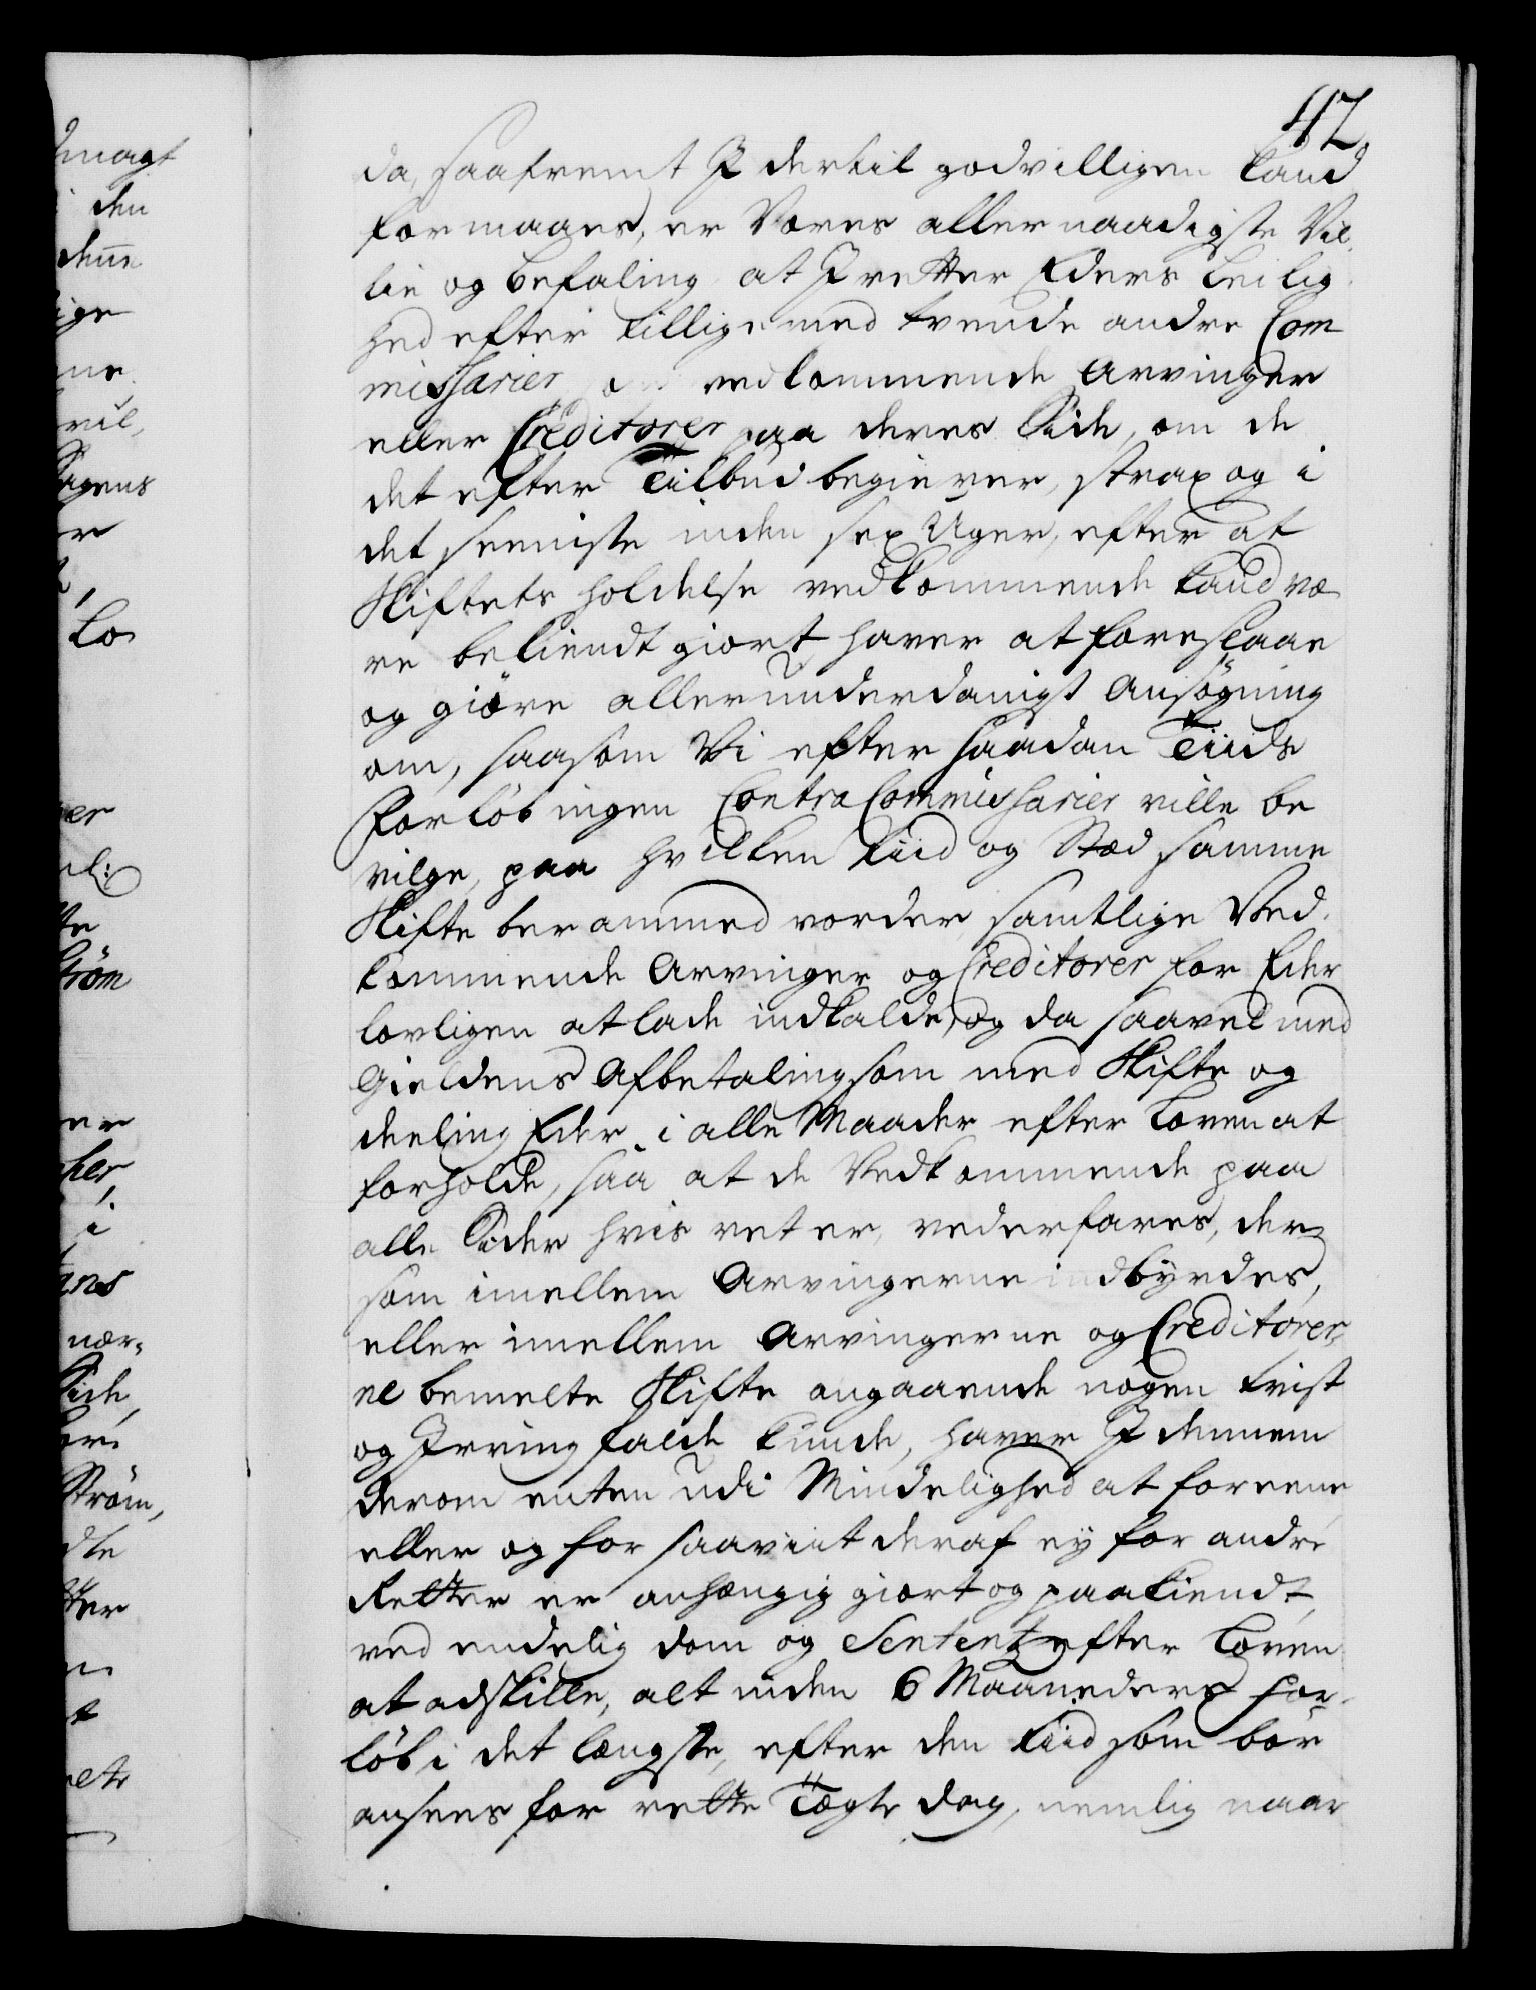 412.
da, saafremt I dertil godvilligen kand
formaaes, er Vores allernaadigste Vil-
lie og befaling at I retter Eders Leilig-
hed efter tillige med tvende andre Com
missarier, vedkommende Arvinger
eller Creditorer paa deres Side, om de
det efter Tilbud begierer, strax og i
det seeniste inden sex Uger, efter at
Skiftets holdelse vedkommende kand væ
re bekiendt giort, haver at foreslaae
og giøre allerunderdanigst Ansøgning
om, saasom Vi efter saadan Tiids
Forløb ingen Contra Commissarier ville be
vilge, paa hvilken tiid og Stæd samme
Skifte berammed vorder, samtlige Ved-
kommende Arvinger og Creditorer for Eder
lovligen at lade indkalde, og da saavel med
Gieldens Afbetaling som med Skifte og
deeling Eder i alle Maader efter Loven at
forholde, saa at de Vedkommende paa
alle Sider hvis ret er, vederfares, der-
som imellem Arvingerne indbyrdes,
eller imellem Arvingerne og Creditorer-
ne bemelte Skifte angaaende nogen tvist
og Irring falde kunde, haver I dennem
derom enten udi Mindelighed at foreene
eller og for saaviit deraf ey for andre
Retter er anhængig giort og paakiendt,
ved endelig dom og Sententz efter Loven
at adskille, alt inden 6 Maaneders For-
løb i det længste, efter den tiid som bør
ansees for rette Tægte dag, nemlig naar